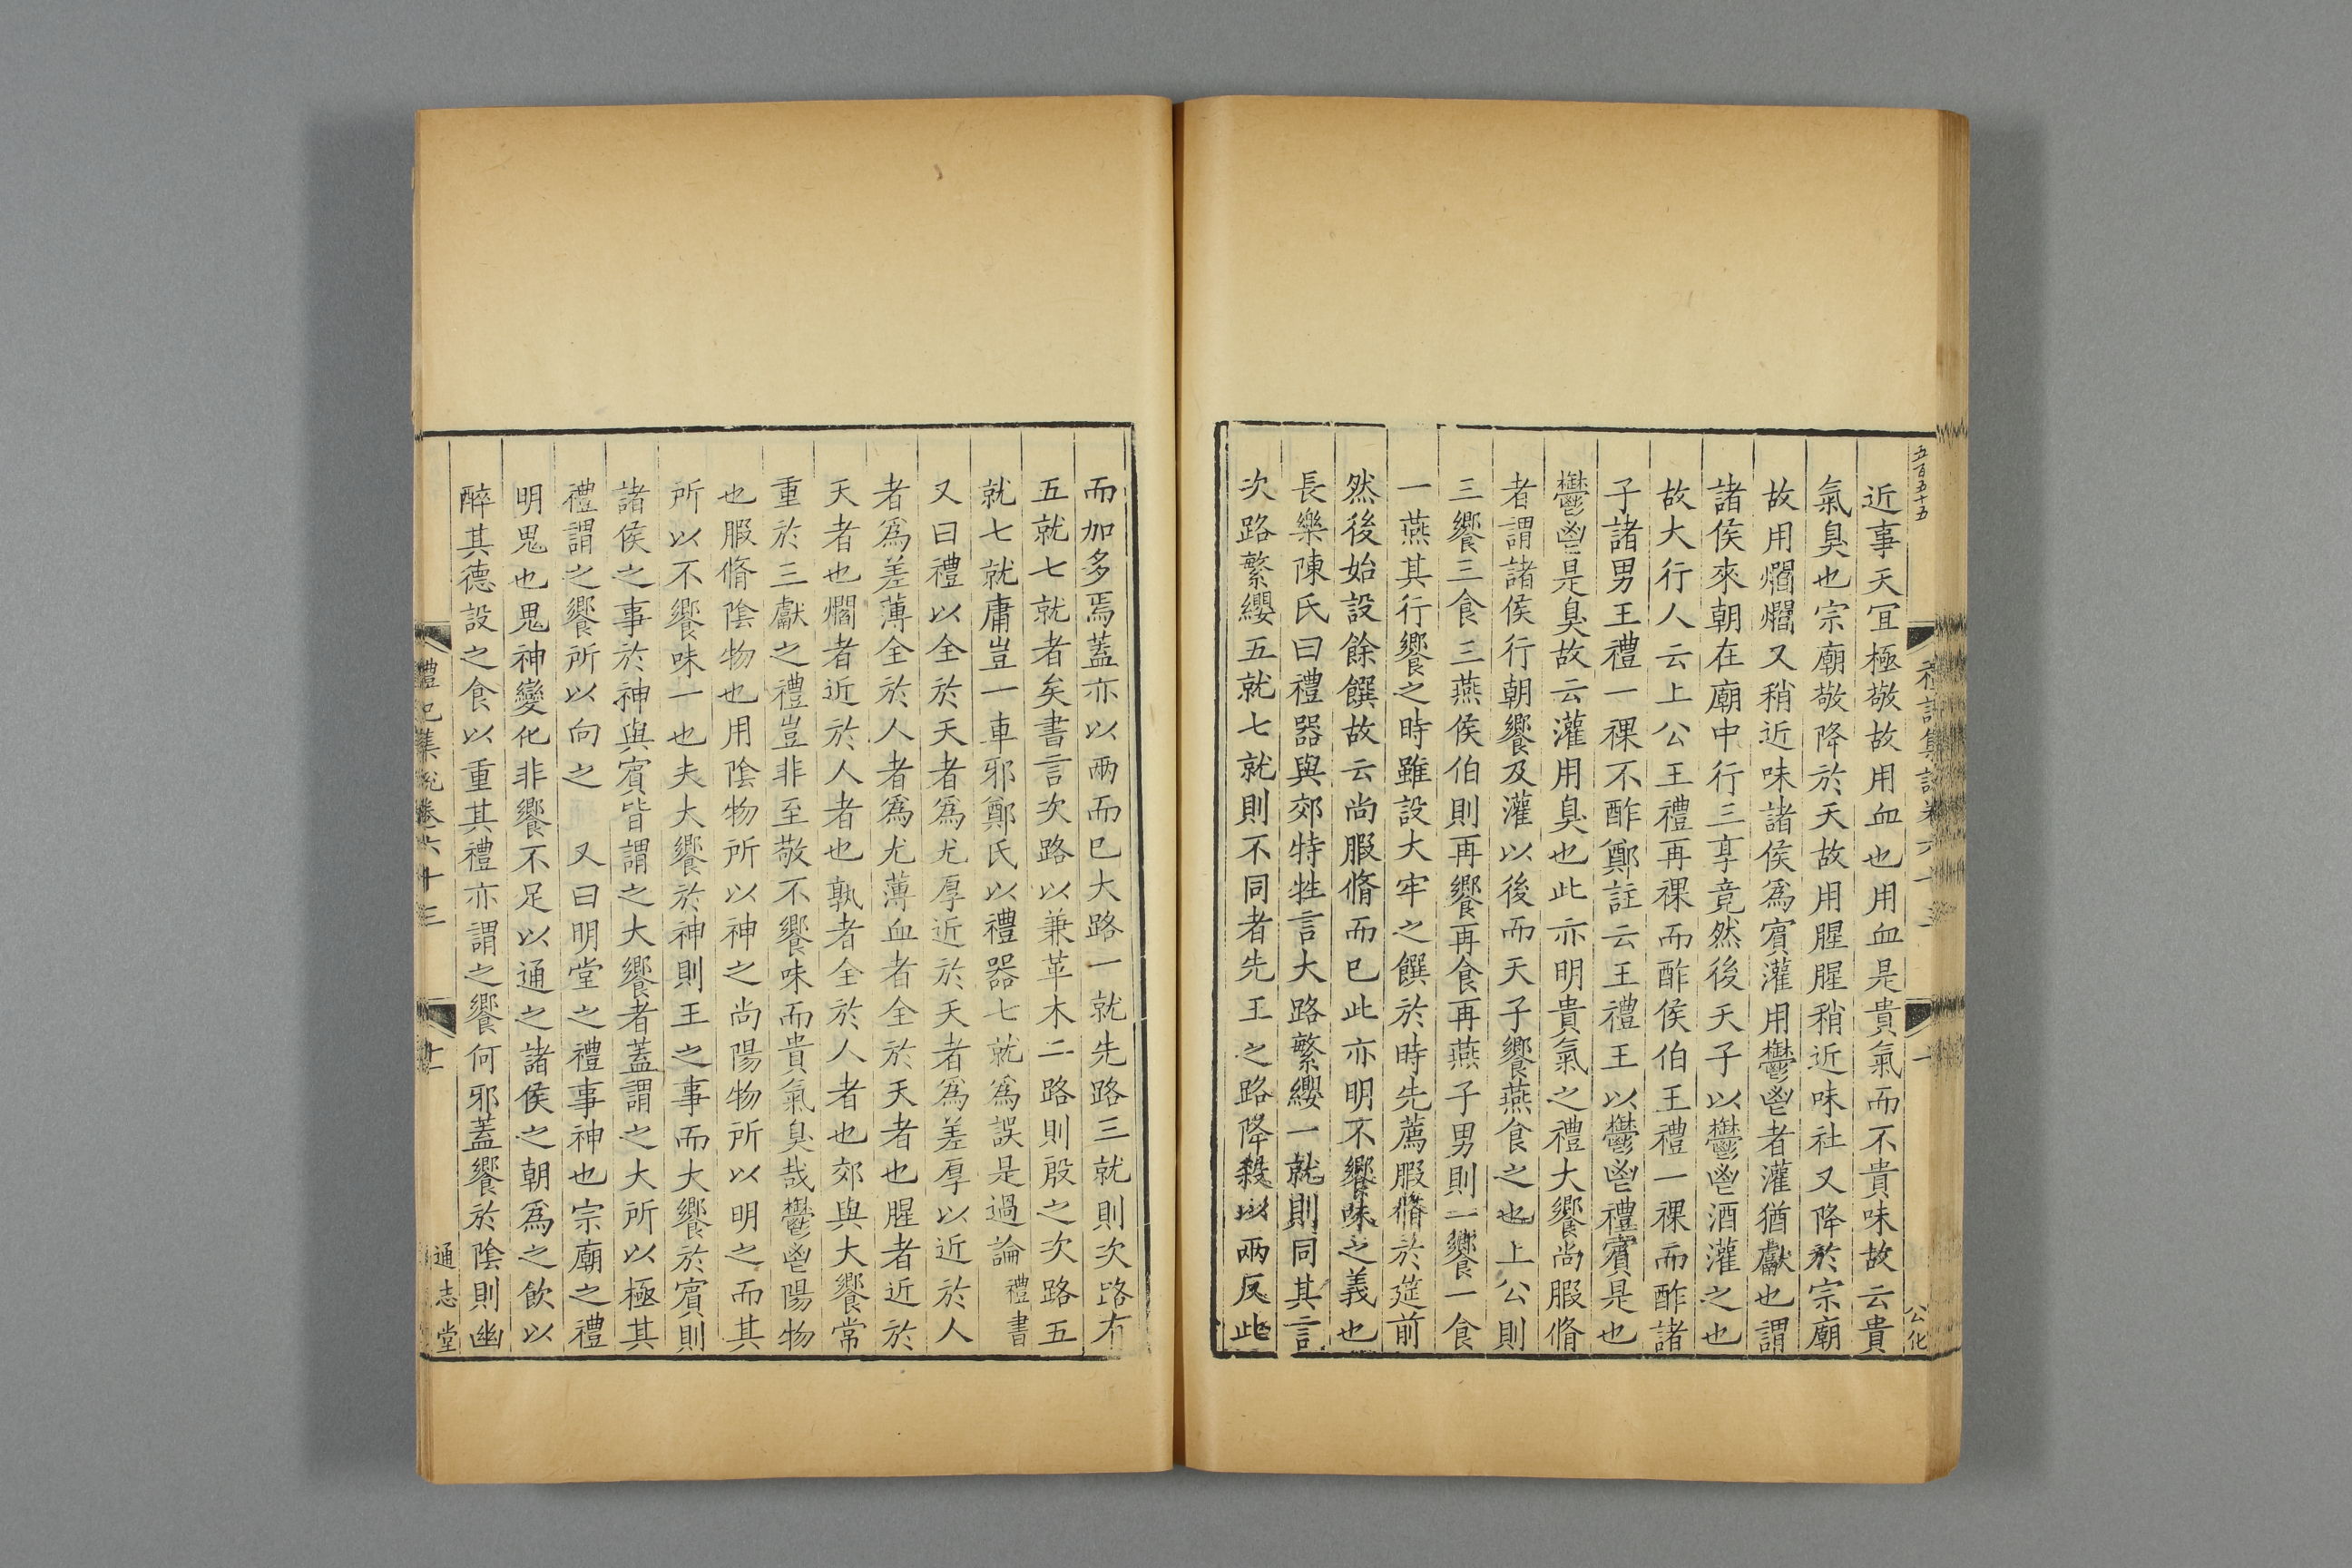 五百五十五
近事天宜極敬故用血也用血是貴氣而不貴味故云貴
氣臭也宗廟敬降於天故用腥腥稍近味社又降於宗廟
故用爓爓又稍近味諸侯爲賓灌用鬱鬯者灌猶獻也謂
諸侯來朝在廟中行三享竟然後天子以鬱鬯酒灌之也
故大行人云上公王禮再祼而酢侯伯王禮一祼而酢諸
子諸男王禮一祼不酢鄭註云王禮王以鬱鬯禮賓是也
鬱鬯是臭故云灌用臭也此亦明貴氣之禮大饗尚腶脩
者謂諸侯行朝饗及灌以後而天子饗燕食之也上公則
三饗三食三燕侯伯則再饗再食再燕子男則一饗一食
一燕其行饗之時雖設大牢之饌於時先薦腶脩於筵前
然後始設餘饌故云尚腶脩而已此亦明不饗味之義也
長樂陳氏曰禮器與郊特牲言大路繁纓一就則同其言
次路繁纓五就七就則不同者先王之路降殺以兩反此
而加多焉蓋亦以兩而已大路一就先路三就則次路有
五就七就者矣書言次路以兼革木二路則殷之次路五
就七就庸豈一車邪鄭氏以禮器七就爲誤是過論 禮書
又曰禮以全於天者爲尤厚近於天者爲差厚以近於人
者爲差薄全於人者爲尤薄血者全於天者也腥者近於
天者也爓者近於人者也孰者全於人者也郊與大饗常
重於三獻之禮豈非至敬不饗味而貴氣臭哉鬱鬯陽物
也腶脩陰物也用陰物所以神之尚陽物所以明之而其
所以不饗味一也夫大饗於神則王之事而大饗於賓則
諸侯之事於神與賓皆謂之大饗者蓋謂之大所以極其
禮謂之饗所以向之 又曰明堂之禮事神也宗廟之禮
明鬼也鬼神變化非饗不足以通之諸侯之朝爲之飲以
醉其德設之食以重其禮亦謂之饗何邪蓋饗於陰則幽
禮記集說卷六十三
通志堂